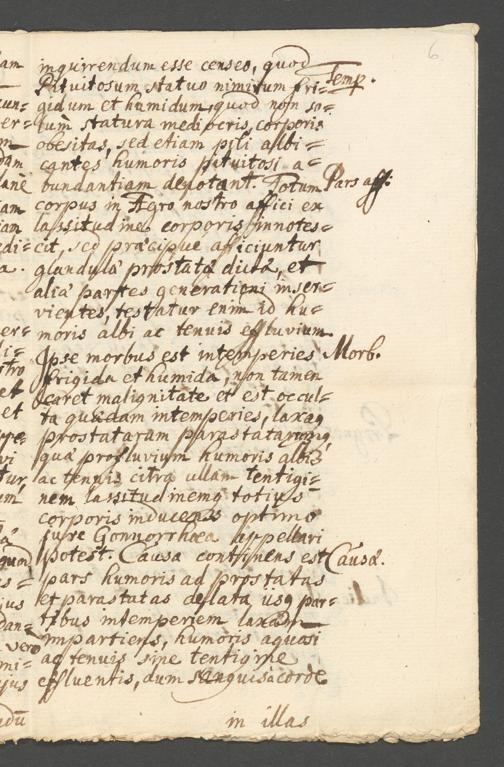 6
inquirendum esse censeo, quod
Pituitosum statuo nimirum fri= Temp.
gidum et humidum, quod non so=
lum statura mediocris, corporis
obesitas, sed etiam pili albi=
cantes humoris pituitosi a=
bundantiam denotant. Totum Pars aff.
corpus in Ægro nostro affici ex
lassitudine corporis innotes=
cit, sed præcipue afficiuntur
glandulæ prostatæ dictæ, et
aliæ partes generationi inser=
vientes, testatur enim id hu=
moris albi ac tenuis effluvium
Ipse morbus est intemperies Morb.
frigida et humida, non tamen
caret malignitate et est occul=
ta quædam intemperies, laxaq
prostatarum parastatarumq,
quæ profluvium humoris albi
ac tenuis citra ullam tentigi=
nem lassitudinemq totius
corporis inducens optimo
jure Gonnorrhœa appellari
potest. Causa continens est Causæ.
pars humoris ad prostatas
et parastatas delata iisq par=
tibus intemperiem laxam
impartiens, humoris aquosi
ac tenuis sine tentigine
effluentis, dum sanguis a corde
in illas